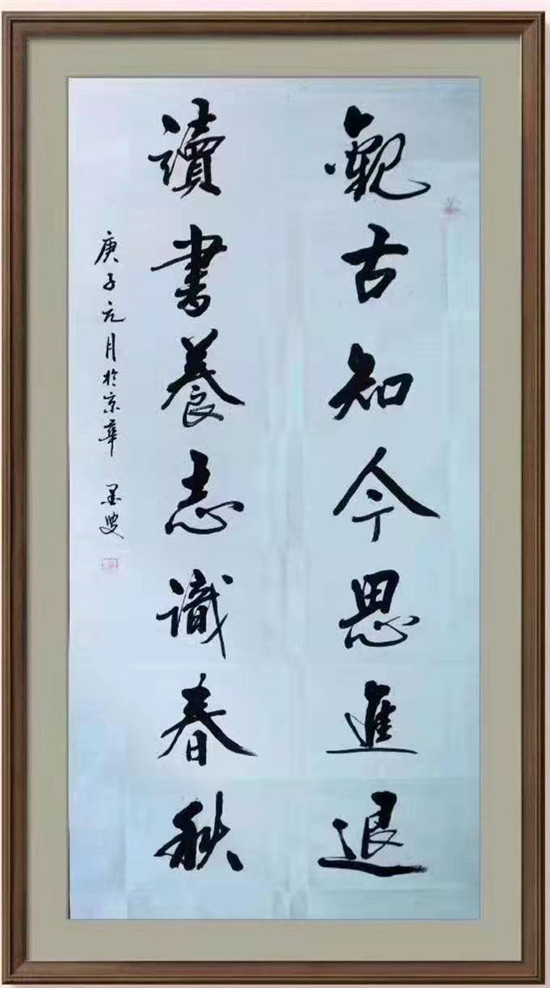 觀古知今思進退
讀書養志識春秋
庚子元月於京華 墨叟